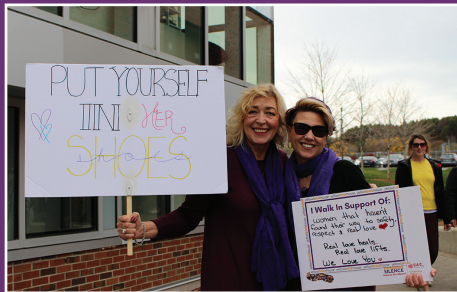 PUT YOURSELF
IINI HER
SHOES
shoes
I Walk In Support Of:
women that haven't
found their way to safety,
respect & real love
Real love heals.
Real love lifts.
We Love You
SILENCE